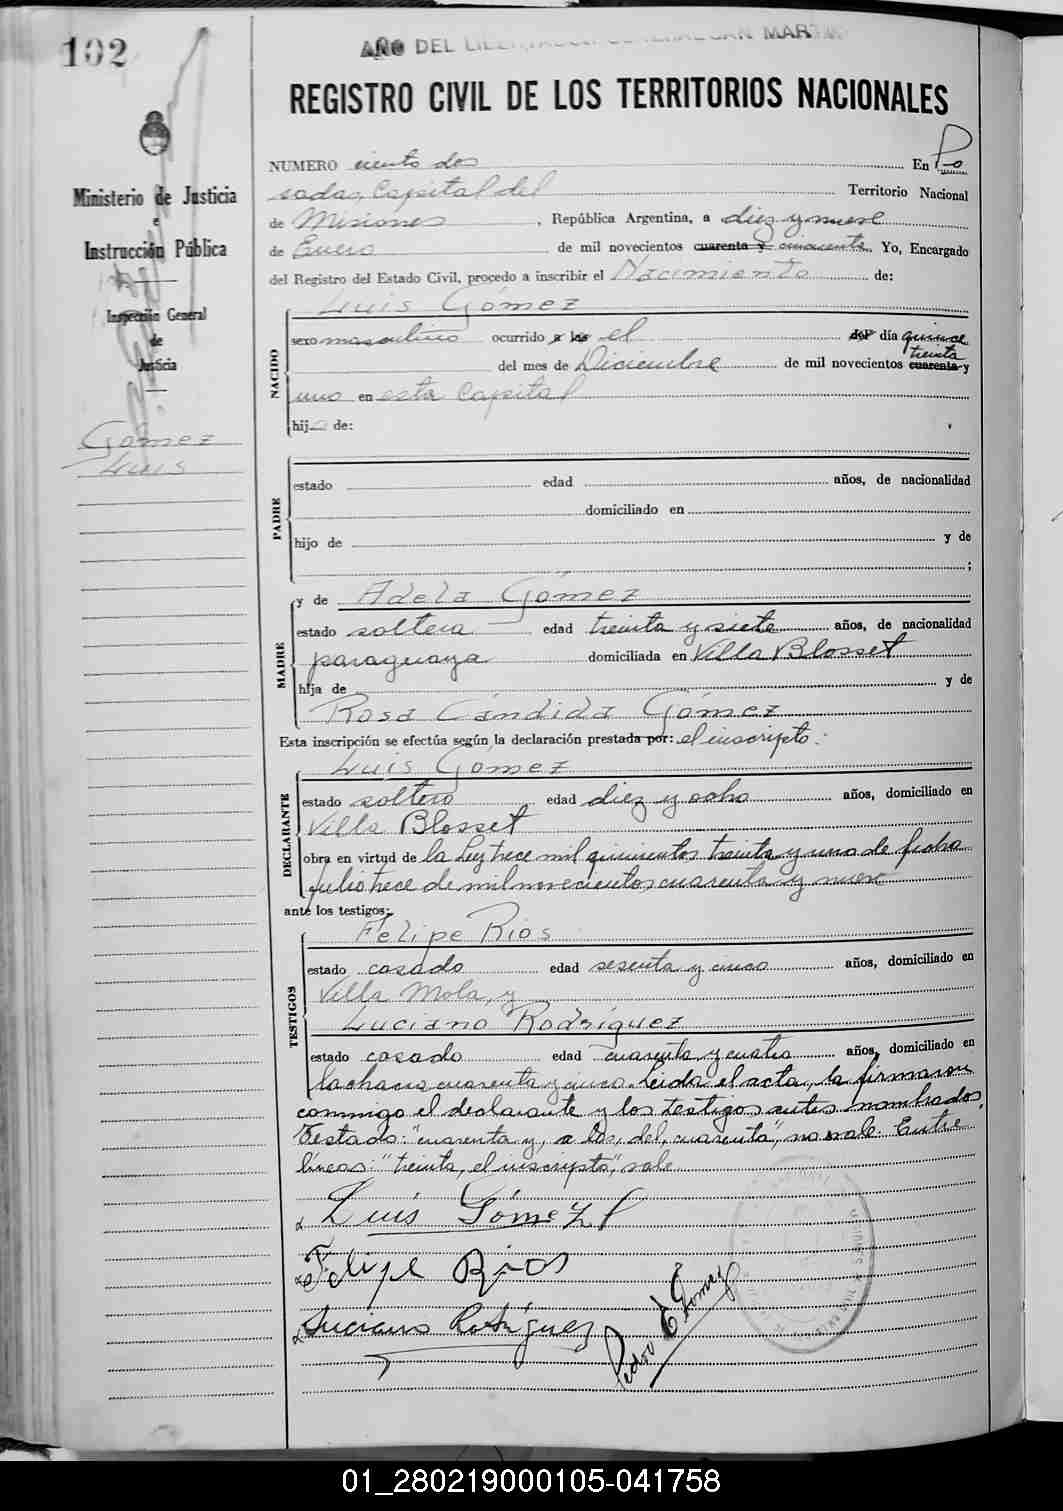 102
AÑO DEL LIBERTADOR GENERAL SAN MARTIN
REGISTRO CIVIL DE LOS TERRITORIOS NACIONALES
Ministerio de Justicia
e
Instrucción Pública
Inspección General
de
Justicia
Gómez
Luis
NUMERO ciento dos En Po
sadas, Capital del Territorio Nacional
de Misiones, República Argentina, a diez y nueve
de Enero de mil novecientos cuarenta y cincuenta. Yo, Encargado
del Registro del Estado Civil, procedo a inscribir el Nacimiento de:
Luis Gómez
NACIDO
sexo masculino ocurrido a las el del día quince
treinta
del mes de Diciembre de mil novecientos cuarenta y
uno en esta Capital
hijo de:
PADRE
estado edad años, de nacionalidad
domiciliado en
hijo de y de
;
MADRE
y de Adela Gómez
estado soltera edad treinta y siete años, de nacionalidad
paraguaya domiciliada en Villa Blosset
hija de y de
Rosa Cándida Gómez
Esta inscripción se efectúa según la declaración prestada por: el inscripto:
DECLARANTE
Luis Gómez
estado soltero edad diez y ocho años, domiciliado en
Villa Blosset
obra en virtud de la Ley trece mil quinientos treinta y uno de fecha
Julio trece de mil novecientos cuarenta y nueve
ante los testigos:
TESTIGOS
Felipe Rios
estado casado edad sesenta y cinco años, domiciliado en
Villa Mola, y
Luciano Rodríguez
estado casado edad cuarenta y cuatro años, domiciliado en
la chacra cuarenta y cinco. Leida el acta, la firmaron
conmigo el declarante y los testigos antes nombrados.
Testado: "cuarenta y, a las, del, cuarenta", no vale. Entre
líneas: "treinta, el inscripto", vale
Luis Gómez
Felipe Rios
Luciano Rodríguez
Pedro E Gomez
01_280219000105-041758